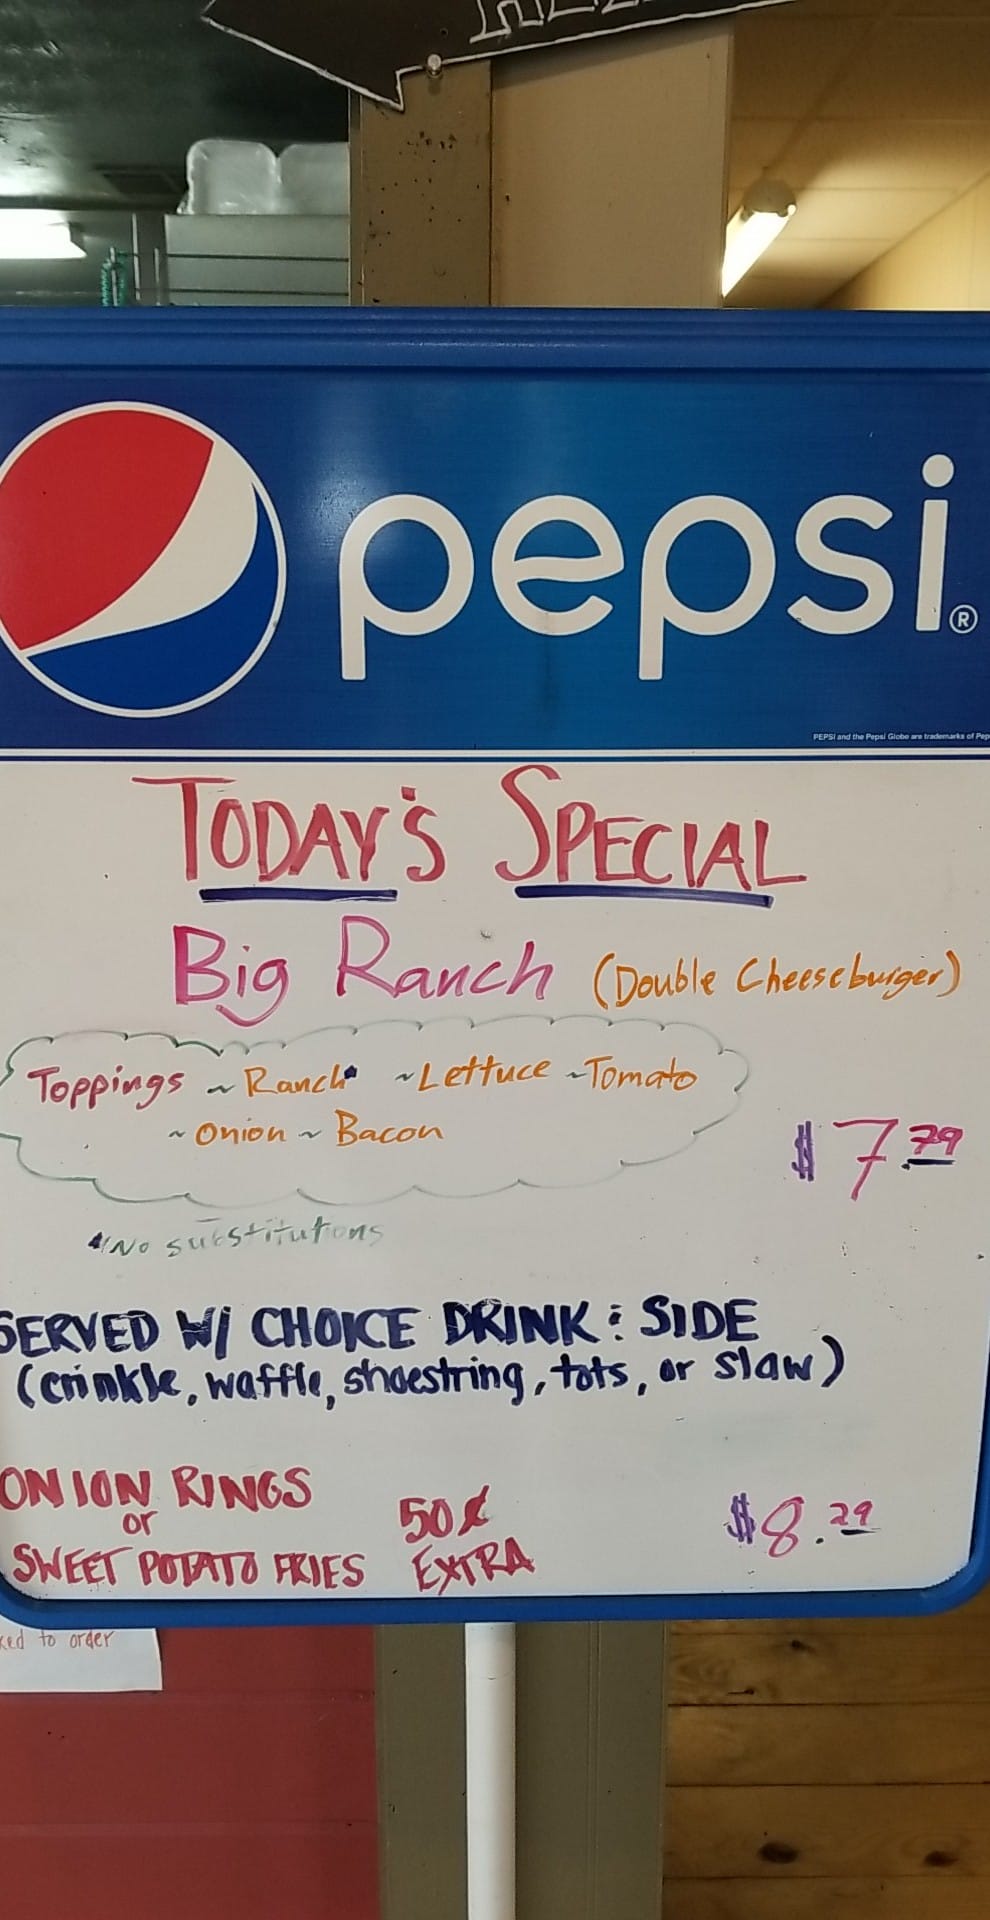 pepsi®
PEPSI and the Pepsi Globe are trademarks of Pep
TODAY'S SPECIAL
Big Ranch (Double Cheeseburger)
Toppings ~ Ranch* ~Lettuce ~Tomato
~ Onion ~ Bacon
$7.79
*No substitutions
SERVED W/ CHOICE DRINK & SIDE
(crinkle, waffle, shoestring, tots, or slaw)
ONION RINGS
or
SWEET POTATO FRIES
50¢
EXTRA
$8.29
to order